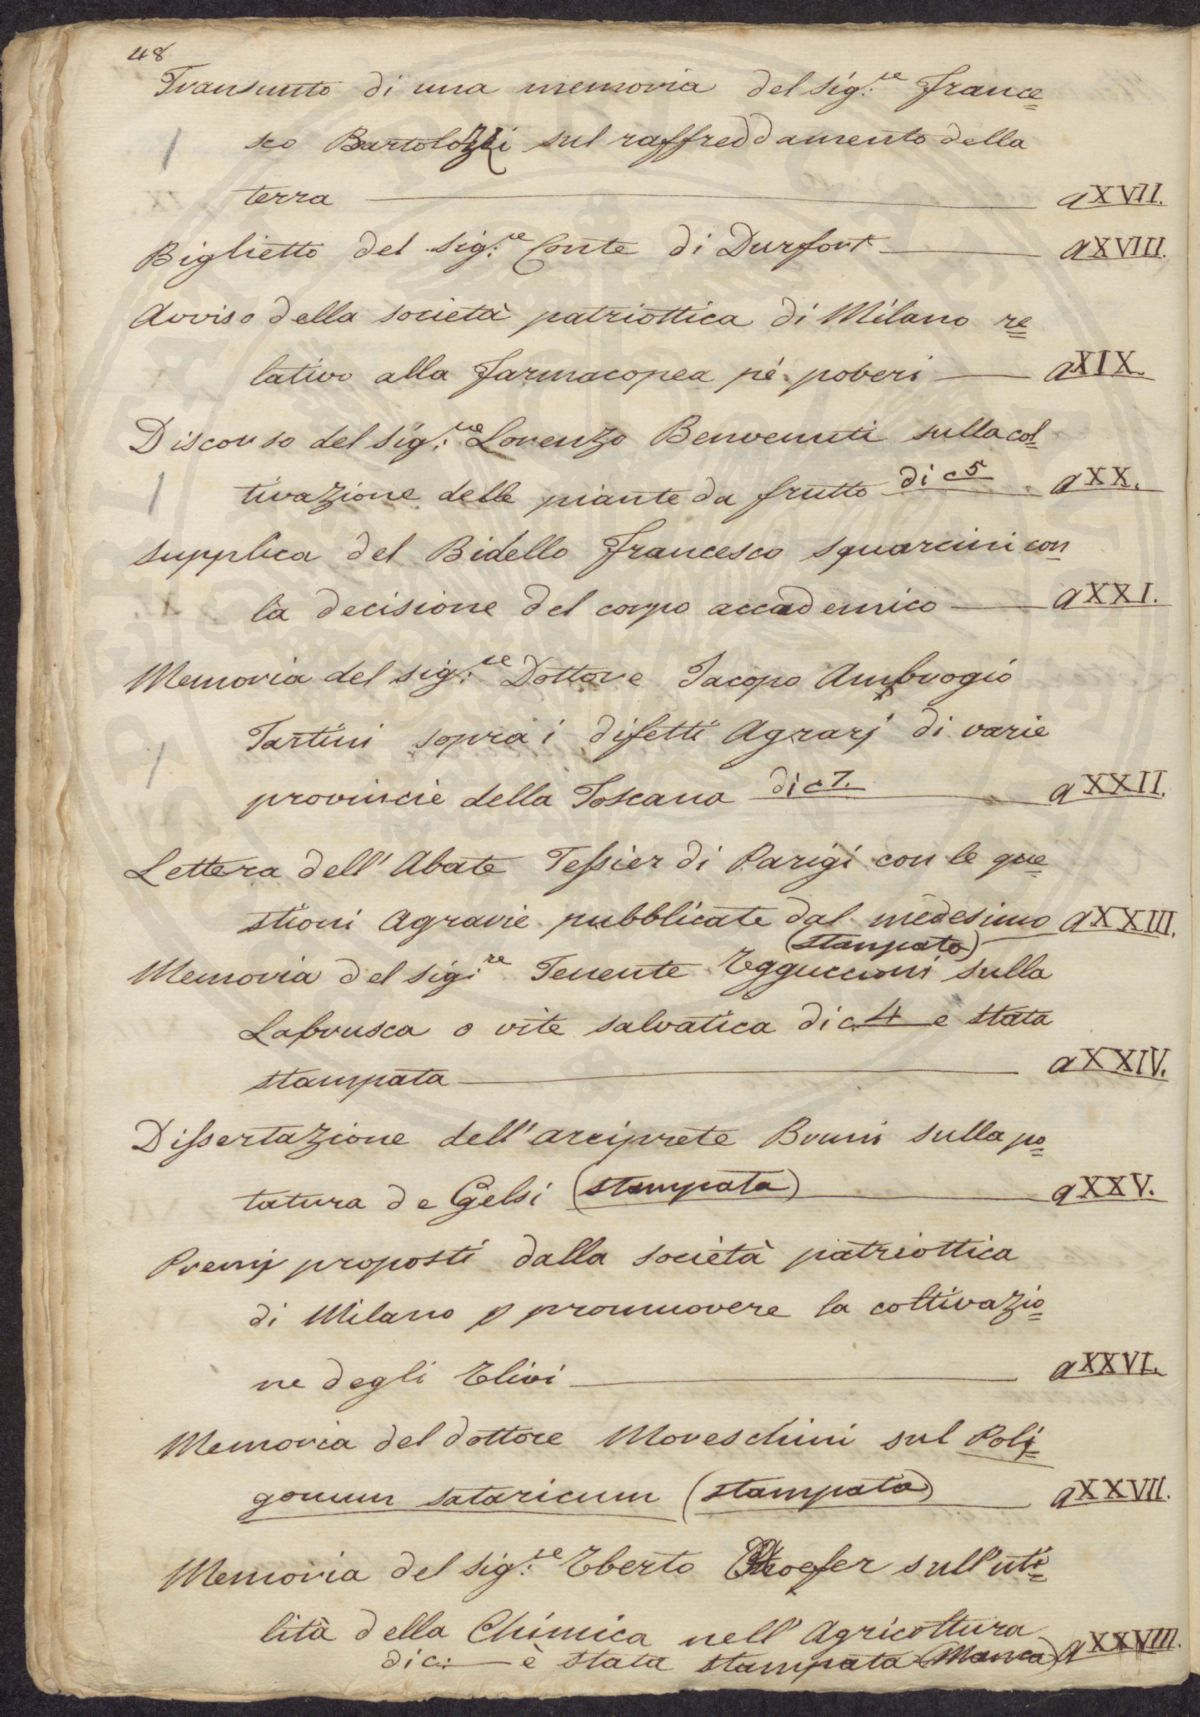 48
Transunto di una memoria del sig.re France=
sco Bartolozzi sul raffreddamento della
terra a XVII.
Biglietto del sig.re Conte di Durfort a XVIII.
Avviso della società patriottica di Milano re=
lativo alla farmacopea pé poveri a XIX.
Discorso del sig.re Lorenzo Benvenuti sulla col=
tivazione delle piante da frutto di c 5 a XX.
supplica del Bidello Francesco squarcini con
la decisione del corpo accademico a XXI.
Memoria del sig.re Dottore Jacopo Ambrogio
Tartini sopra i difetti Agrarj di varie
provincie della Toscana di c 7. a XXII.
Lettera dell' Abate Tessier di Parigi con le que=
stioni Agrarie pubblicate dal medesimo a XXIII.
(stampato)
Memoria del sig.re Tenente sulla
Labrusca o vite salvatica di c. 4 e stata
stampata a XXIV.
Dissertazione dell' arciprete Bruni sulla po=
tatura de Gelsi (stampata) a XXV.
Premj proposti dalla società patriottica
di Milano p promuovere la coltivazio=
ne degli Vlivi a XXVI.
Memoria del dottore Moreschini sul Poli=
gonum sataricum (stampata) a XXVII.
Memoria del sig.re Vberto Hoefer sull' uti=
lità della Chimica nell' Agricoltura
di c: è stata stampata (Manca) a XXVIII.